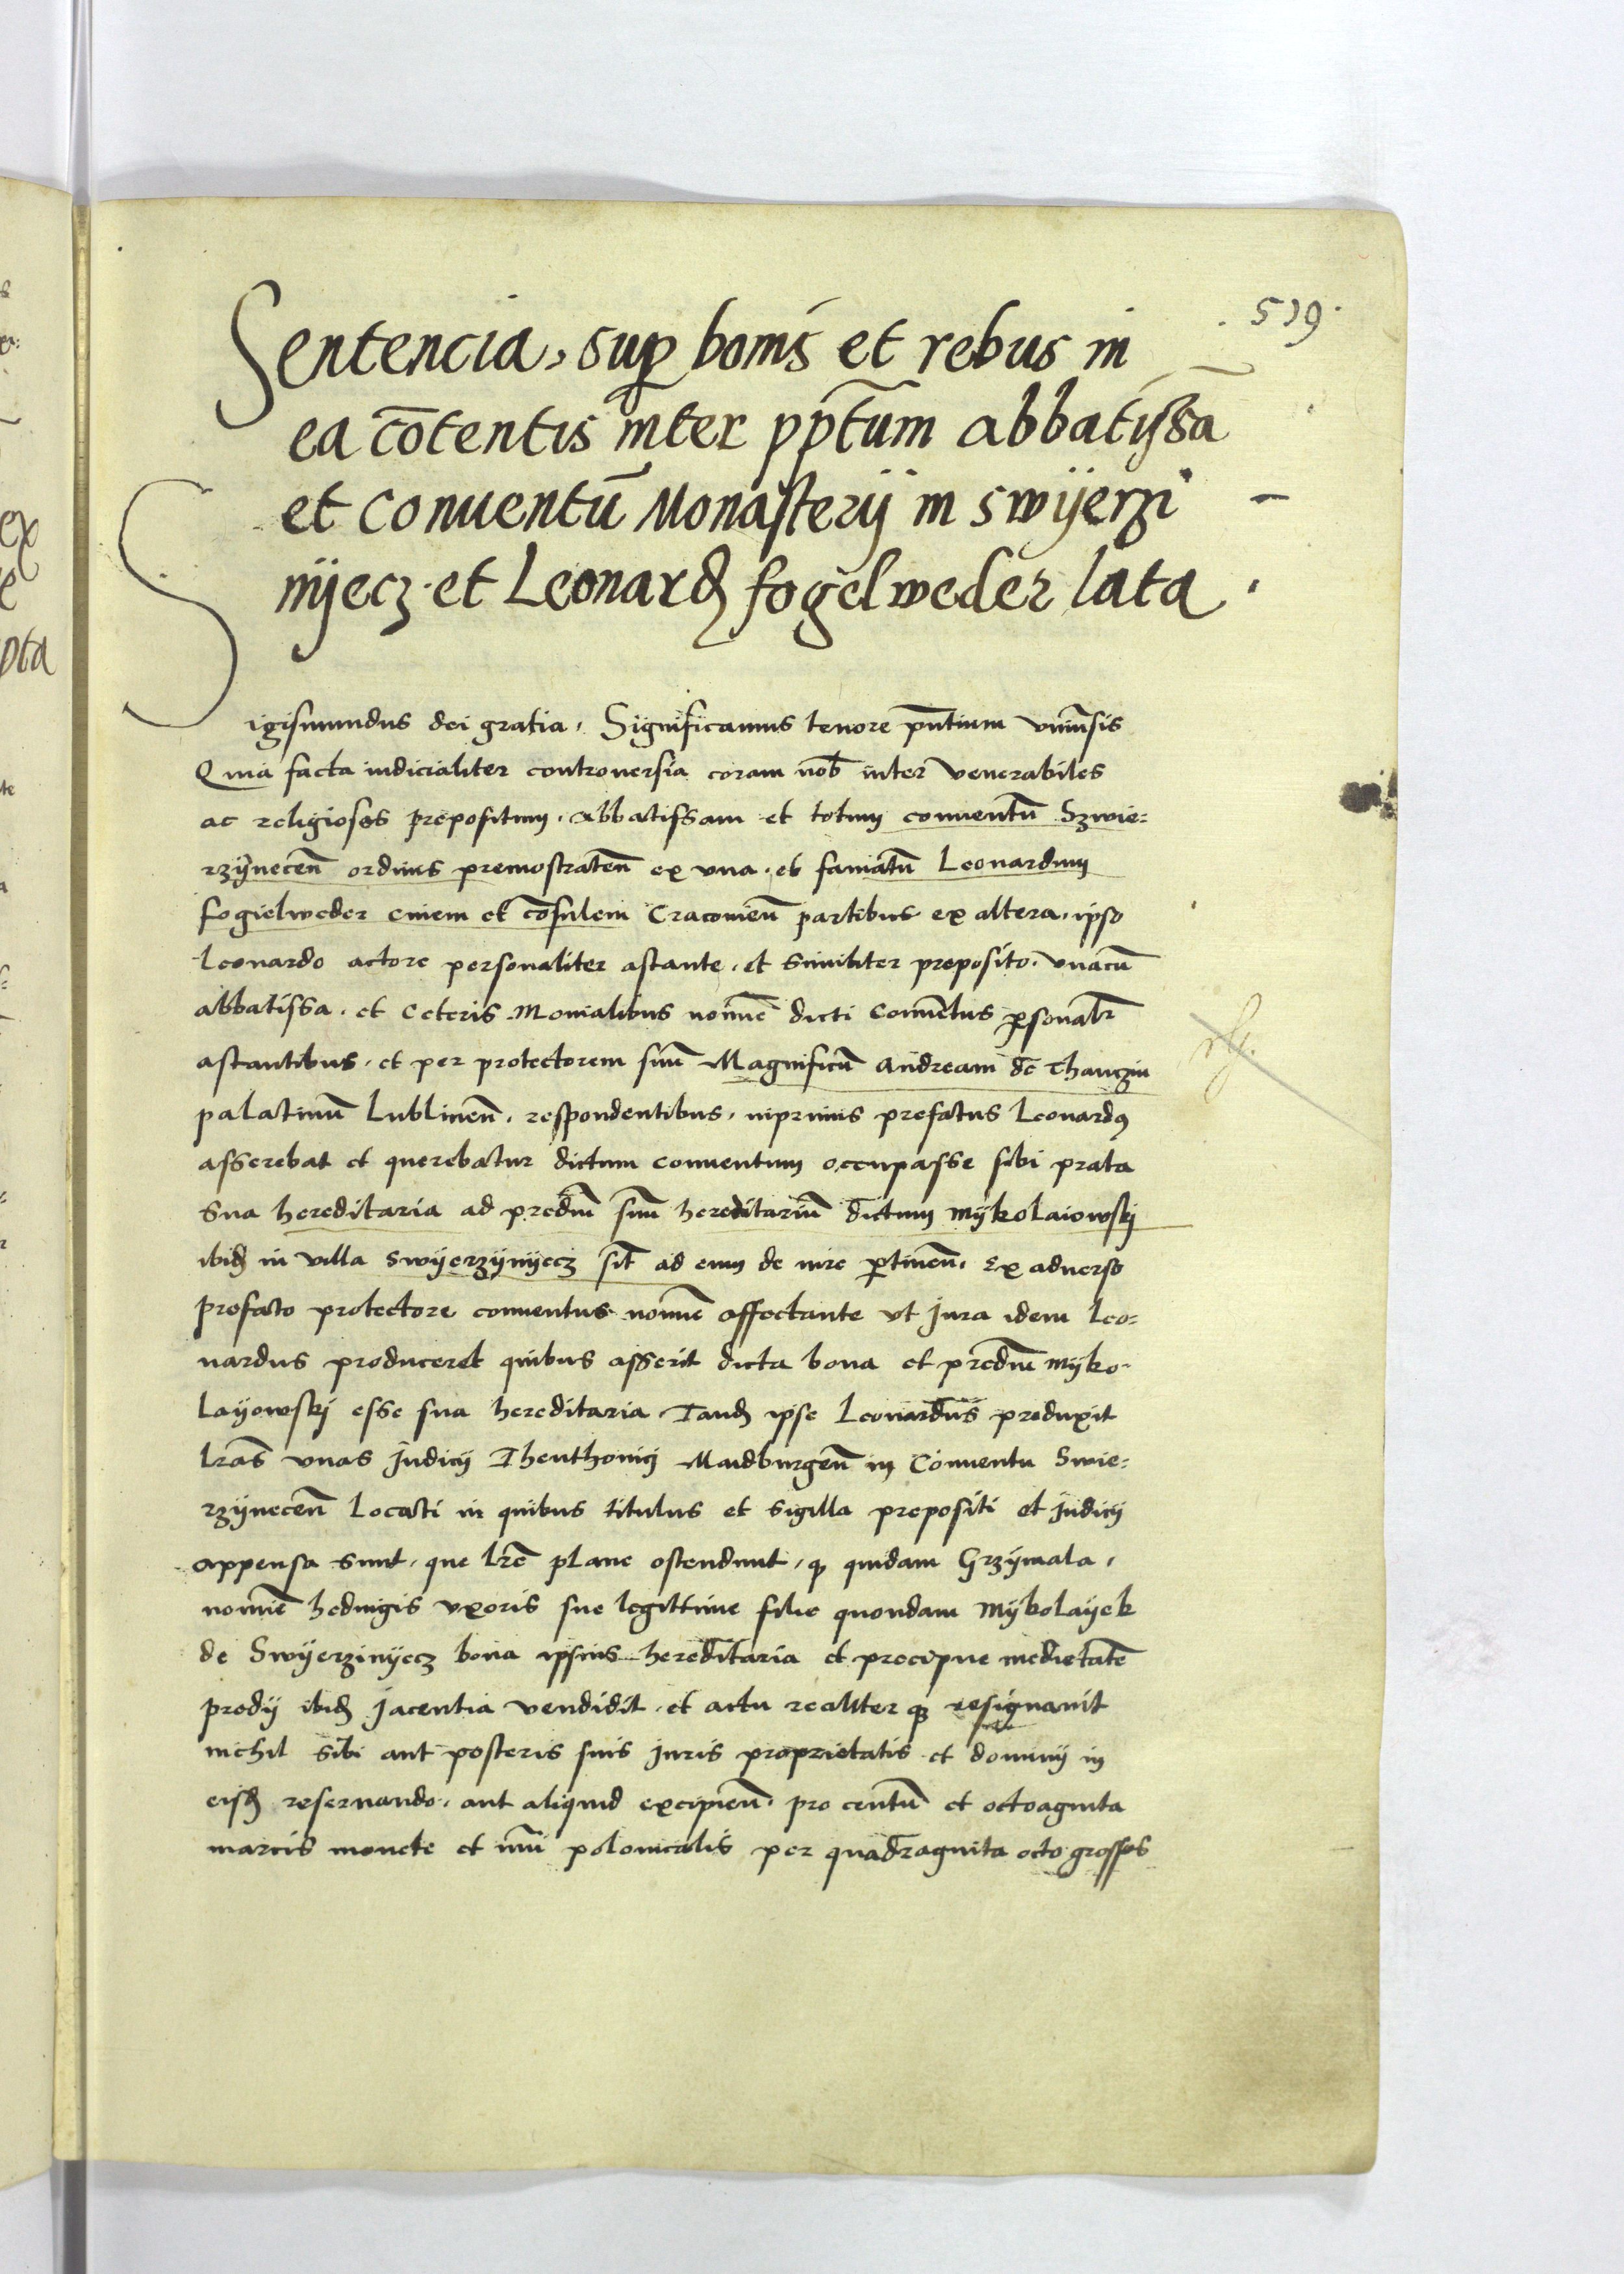 519.
Sentencia, sup bonis et rebus in
ea cōtentis inter pptum abbatissā
et conuentū Monasterij in swyerzi
nijecz et Leonard fogelweder lata
Sigismundus dei gratia. Significamus tenore pn̄tium vniūsis
Quia facta iudicialiter controuersia coram nob inter venerabiles
ac religiosos prepositum. abbatissam et totum conuentū Szwie=
rzynecen̄ ordinis premostraten̄ ex vna. et famatū Leonardum
fogielweder ciuem et cōsulem Cracouien̄ partibus ex altera. ipso
Leonardo actore personaliter astante. et similiter preposito. vnacū
abbatissa. et Ceteris Monialibus nomīe dicti Conuētus psonalr
astantibus. et per protectorem suū Magnificū Andream de Thanczin
palatinū Lublinen̄. respondentibus. inprimis prefatus Leonard9
asserebat et querebatur dictum conuentum occupasse sibi prata
Sua hereditaria ad prediū suū hereditariū dictum Mykolaiowskj
ibid in villa Swyerzynyecz sit ad eum de iure ptinen̄. Ex aduerso
prefato protectore conuentus nomīe affectante vt Jura idem Leo=
nardus produceret quibus asserit dicta bona et prediū Myko-
layowskj esse sua hereditaria. Tand ipse Leonardus produxit
lr̄as vnas Judicij Theuthonicj Maidburgen̄ in Conuentu Swie=
rzynecen̄ Locati in quibus titulus et sigilla prepositi et Judicij
appensa sunt. que lr̄e plane ostendunt. q quidam Grzymala.
nomīe hedwigis vxoris sue legittime filie quondam Mykolayek
de Swyerzinyecz bona ipsius hereditaria et precipue medietatē
predij ibid Jacentia vendidit. et actu realiter q resignauit
nichil sibi aut posteris suis Juris proprietatis et dominij in
eisd reseruando. aut aliquid excipien̄. pro centū et octoaginta
marcis monete et nūi polonicalis per quadraginta octo grossos